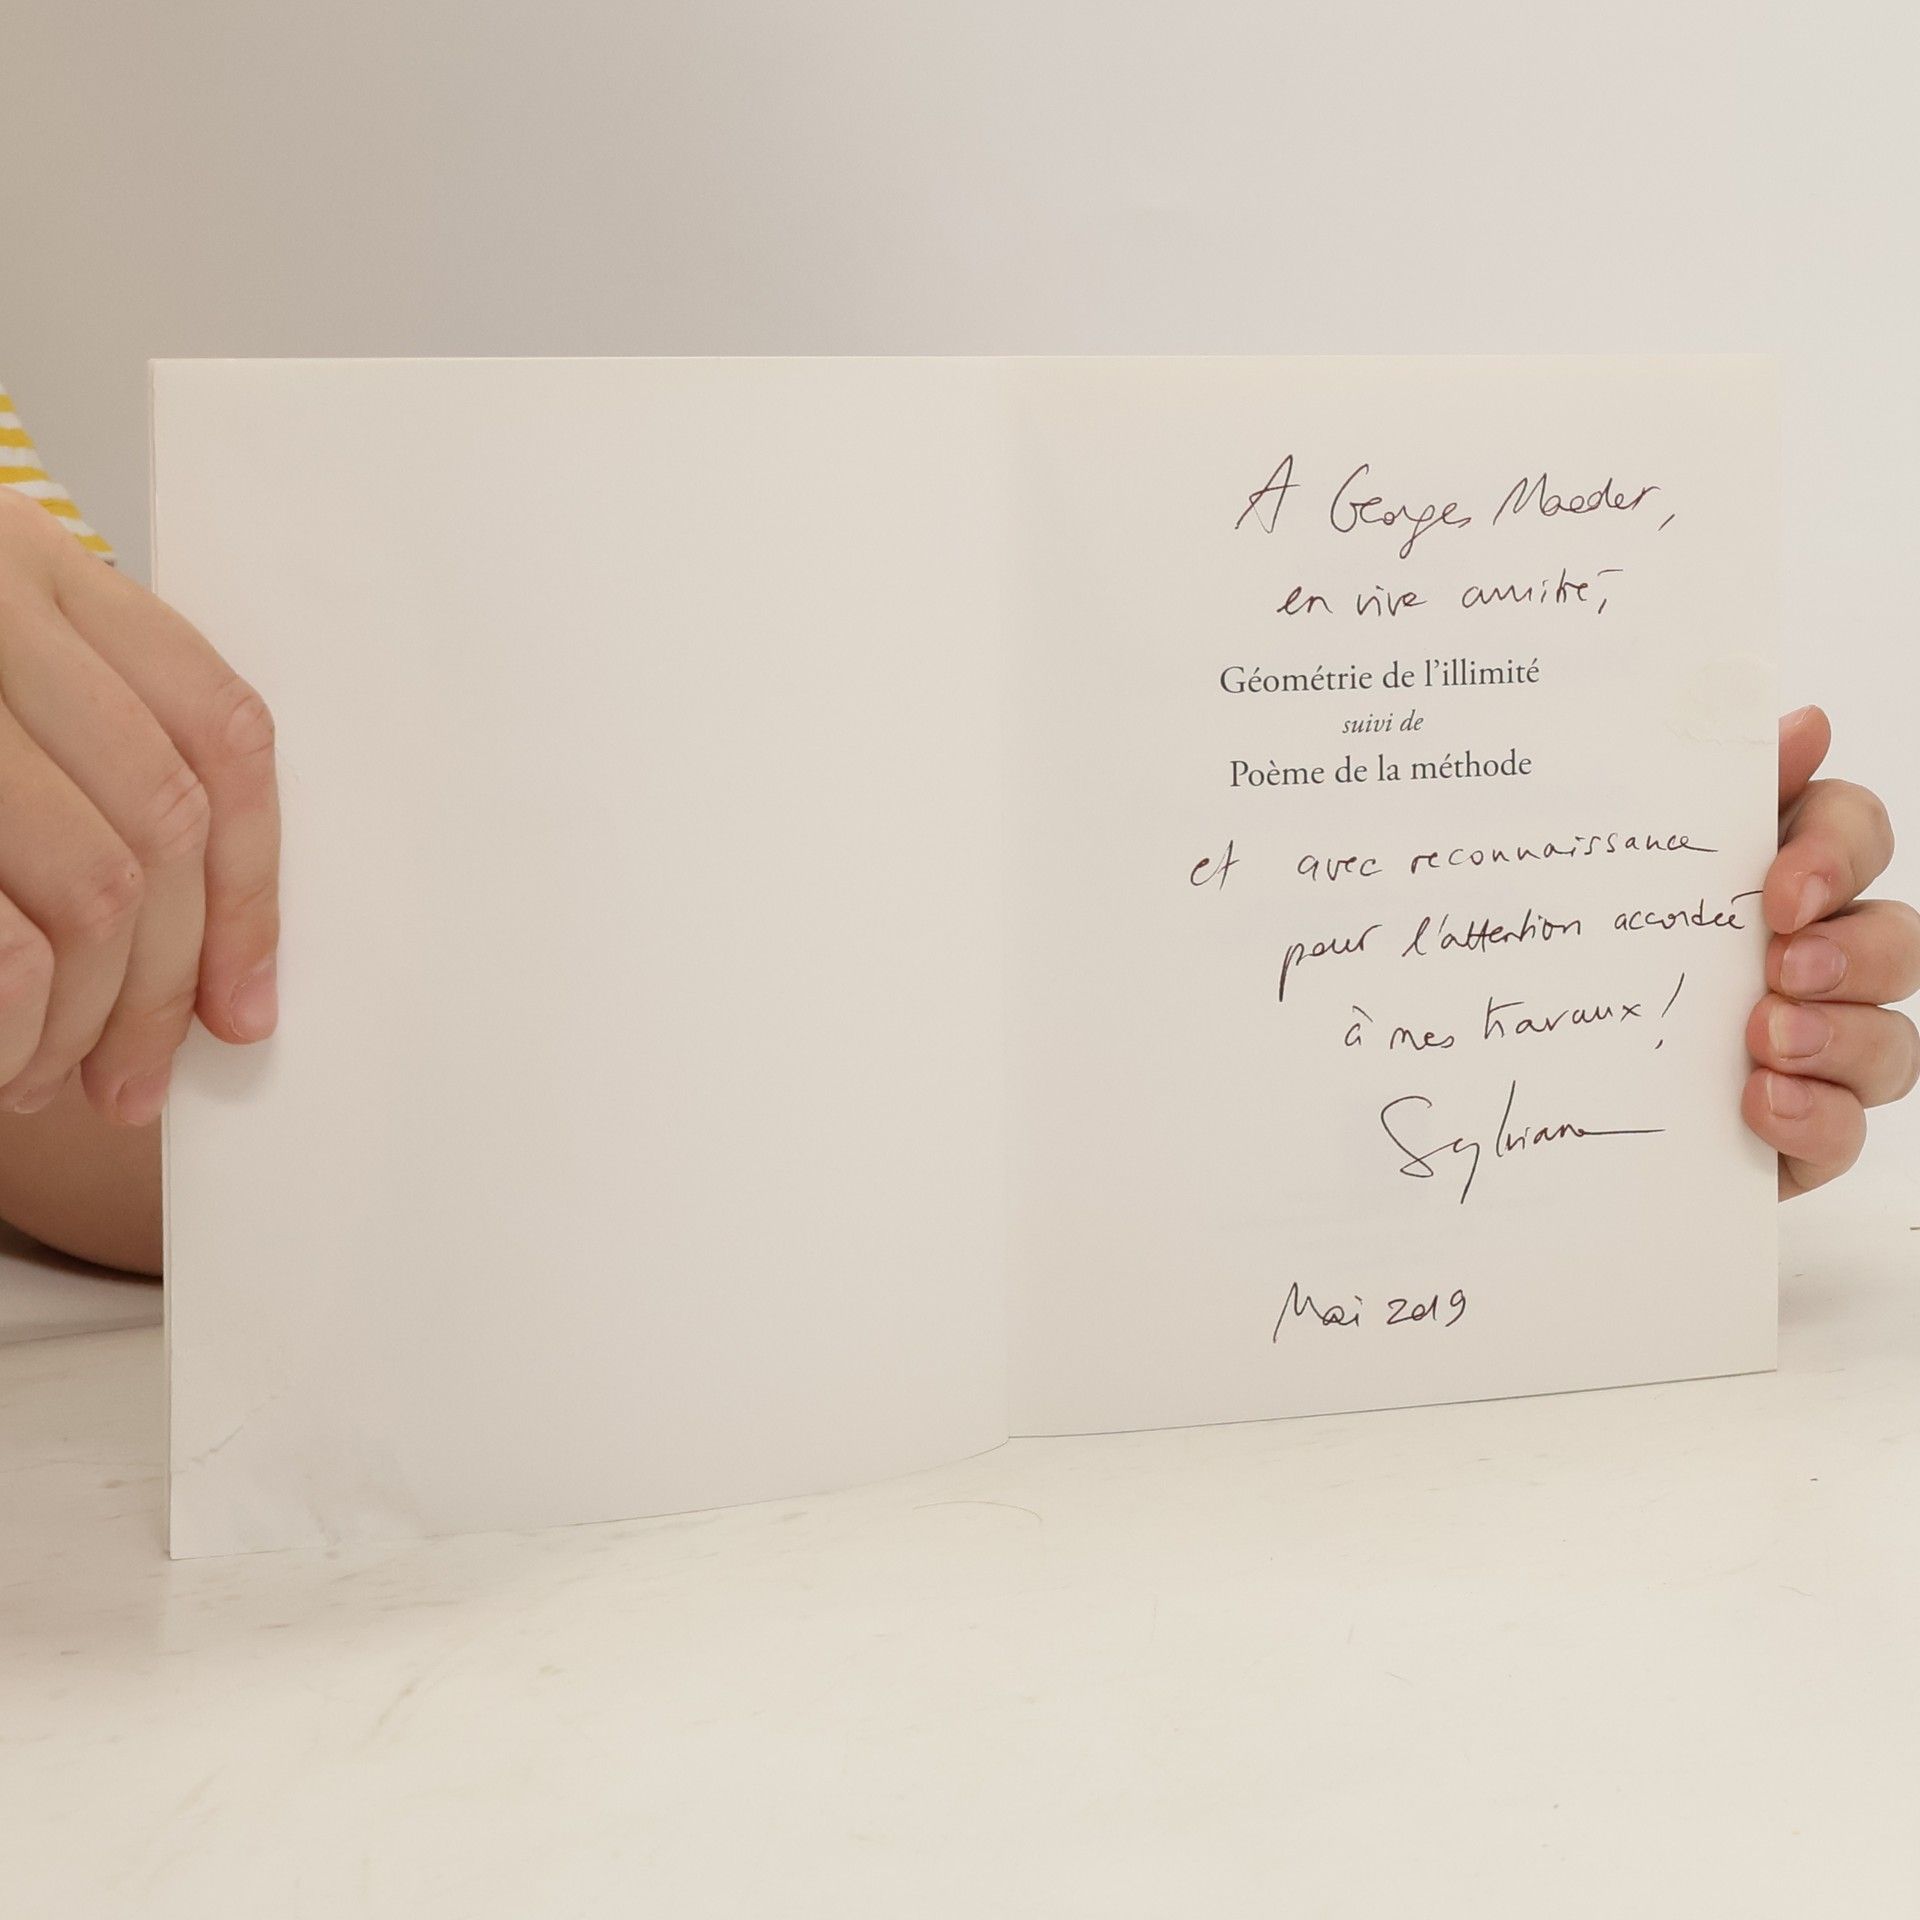 A Georges Maeder,
en vive amitié,
Géométrie de l'illimité
suivi de
Poème de la méthode
et avec reconnaissance
pour l'attention accordée
à mes travaux !
Sylviane
Mai 2019